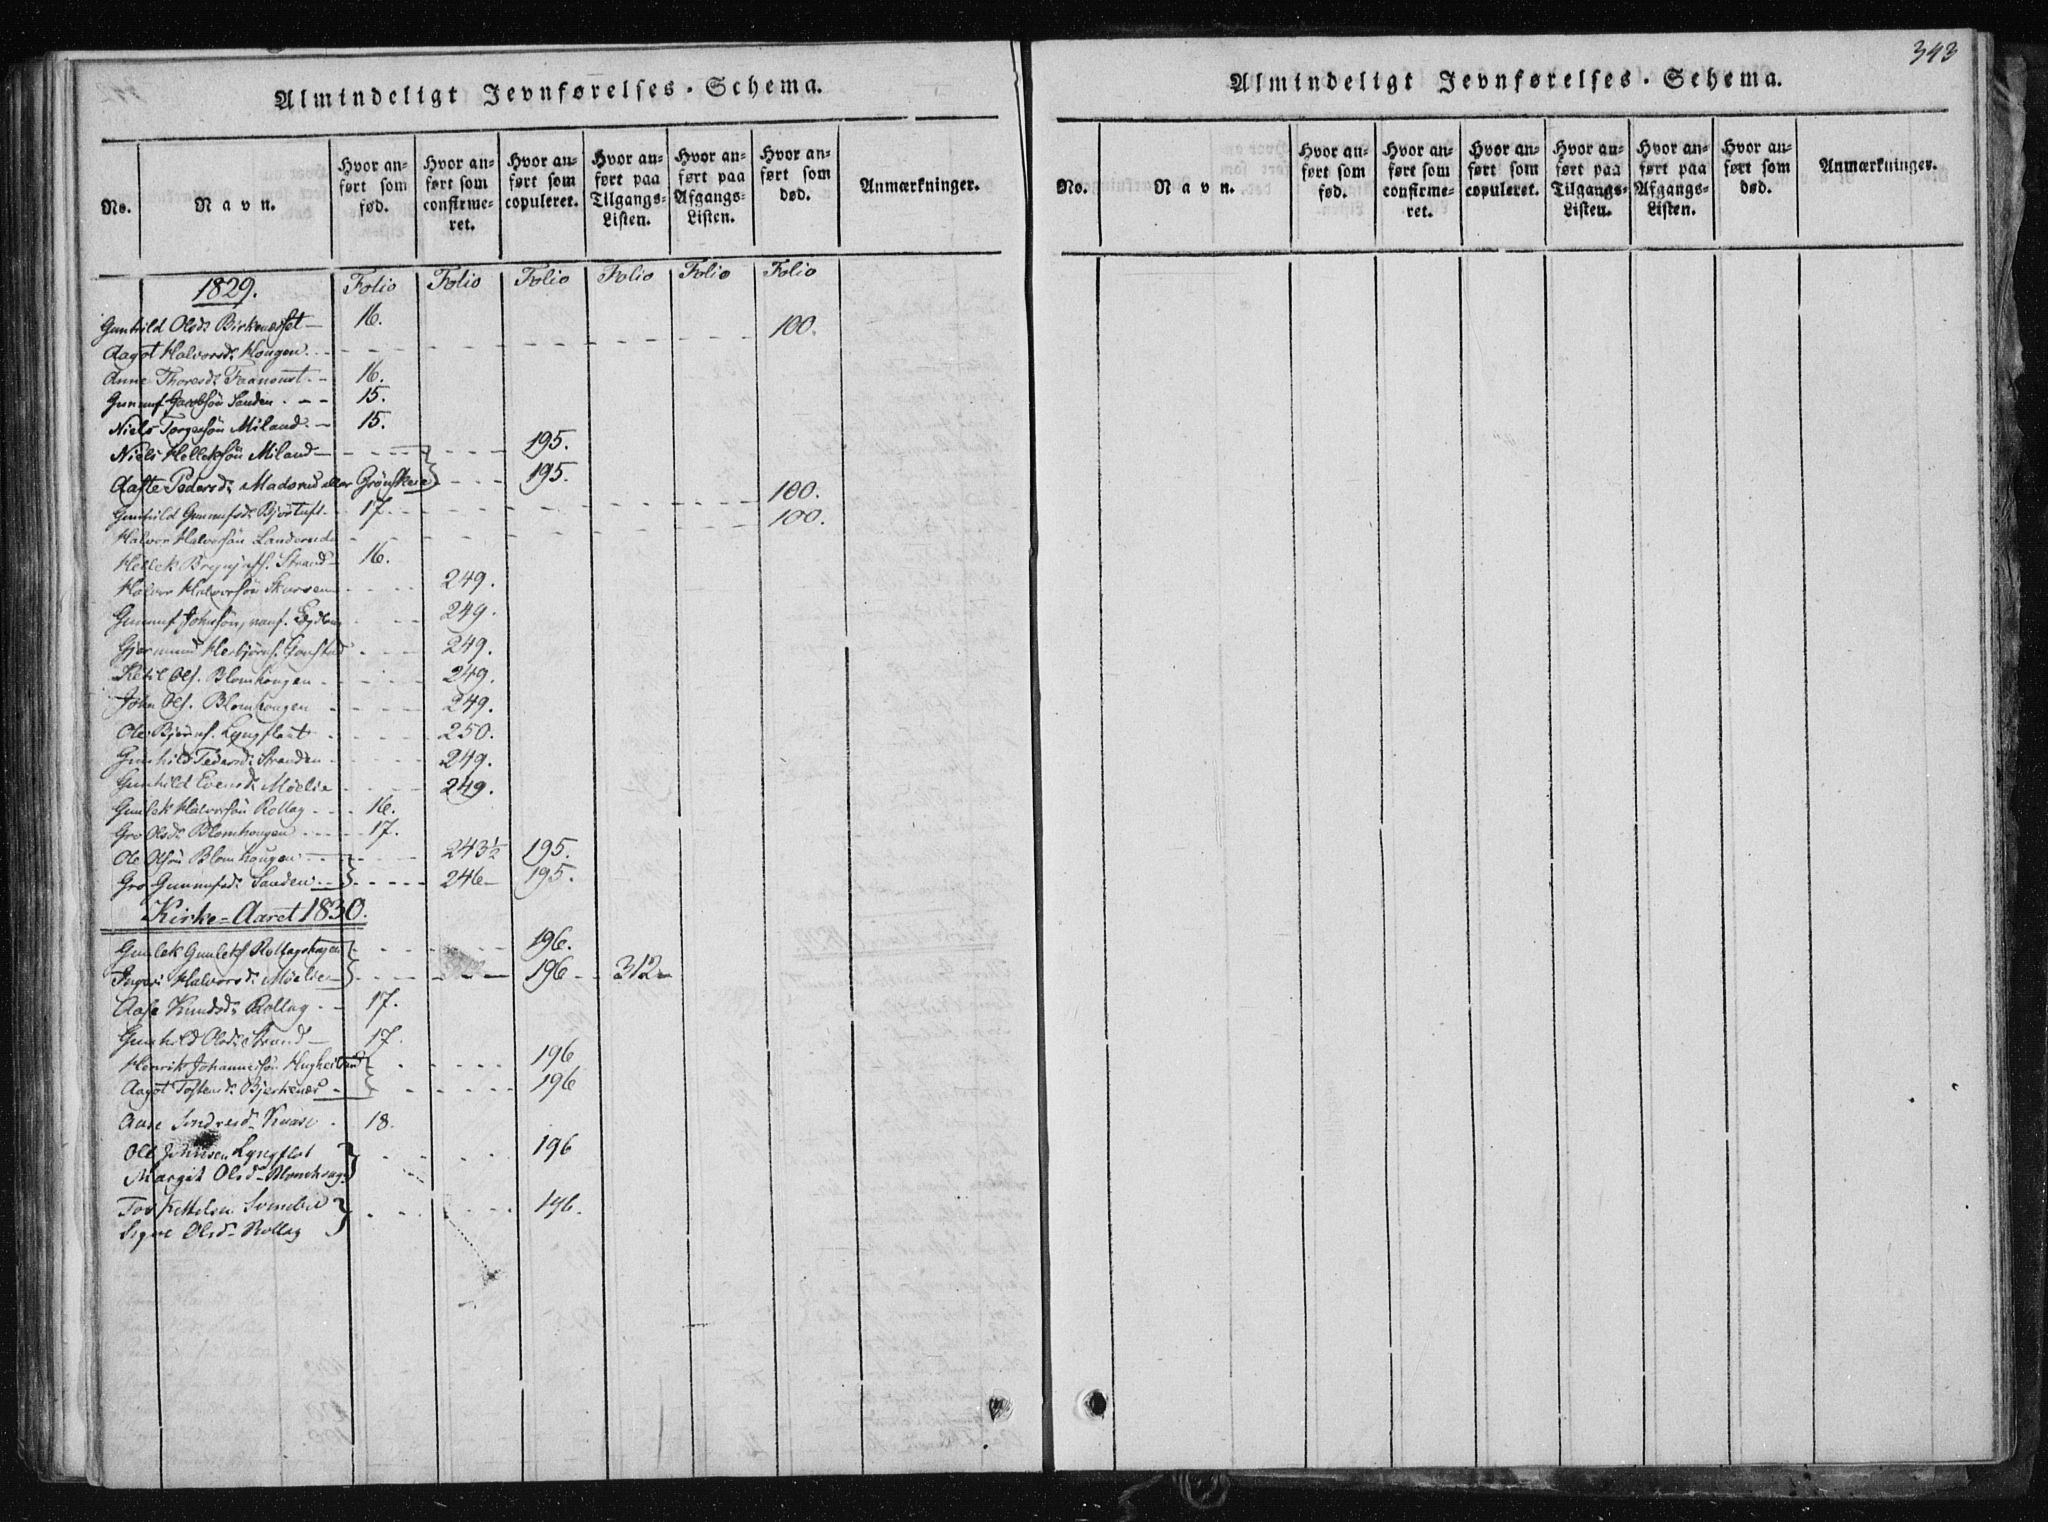 343
Almindeligt Jevnførelses-Schema.
No. Navn. Hvor anført som fød. Hvor anført som confirmeret. Hvor anført som copuleret. Hvor anført paa Tilgangs-Listen. Hvor anført paa Afgangs-Listen. Hvor anført som død. Anmærkninger.
1829. Folio Folio Folio Folio Folio Folio
Gunhild Olsd. Birkenæsset 16.
Aagot Halvorsd. Hougen 100.
Anne Thoresd. 16.
Gunnuf Jacobsön Sanden 15.
Niels Torgersön Miland 15.
Niels Helleksön Miland 195.
Aaste Pedersd. eller 195.
Gunhild Gunnufsd. 17. 100.
Halvor Halvorsön 100.
Hellek Strand 16.
Halvor Halvorsön 249.
Gunnuf Johnsön, 249.
Gjermund 249.
Ketil Ols. Blomhougen 249.
John Ols. Blomhougen 249.
Ole Bjørns. Lyngflaat 250.
Gunhild Pedersd. Stranden 249.
Gunhild Evensd. Moelie 249.
Gunlek Halvorsön Rollag 16.
Gro Olsd. Blomhougen 17.
Ole Olsön Blomhougen 243½ 195.
Gro Gunnufsd. Sanden 246 195.
Kirke-Aaret 1830.
Gunlek Gunleks. 196.
Ingeri Halvorsd. Moelie 196 312
Aase Knudsd. Rollag 17.
Gunhild Olsd. Strand 17.
Henrik Johannesön 196
Aagot Tostensd. Bjerkenæs 196
Aase Sondresd. 18.
Ole Johnsen Lyngflot 196
Margit Olsd. Blomhoug
Tov Kettelsen Svinebul 196.
Signe Olsd. Rollag
Almindeligt Jevnførelses-Schema.
No. Navn. Hvor anført som fød. Hvor anført som confirmeret. Hvor anført som copuleret. Hvor anført paa Tilgangs-Listen. Hvor anført paa Afgangs-Listen. Hvor anført som død. Anmærkninger.